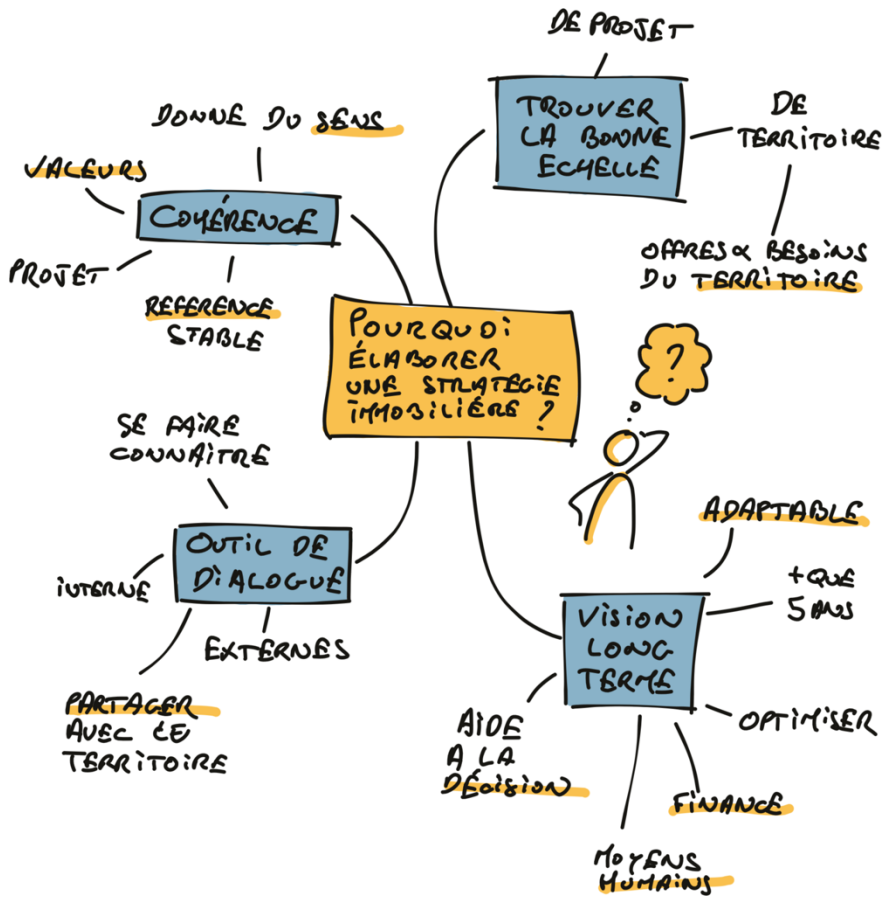 POURQUOI
ÉLABORER
UNE STRATÉGIE
IMMOBILIÉRE ?
COHÉRENCE
DONNE DU SENS
VALEURS
PROJET
REFERENCE
STABLE
TROUVER
LA BONNE
ECHELLE
DE PROJET
DE
TERRITOIRE
OFFRES & BESOINS
DU TERRITOIRE
?
OUTIL DE
DIALOGUE
SE FAIRE
CONNAITRE
INTERNE
EXTERNES
PARTAGER
AVEC LE
TERRITOIRE
VISION
LONG
TERME
ADAPTABLE
+ QUE
5 ANS
OPTIMISER
FINANCE
MOYENS
HUMAINS
AIDE
A LA
DÉCISION